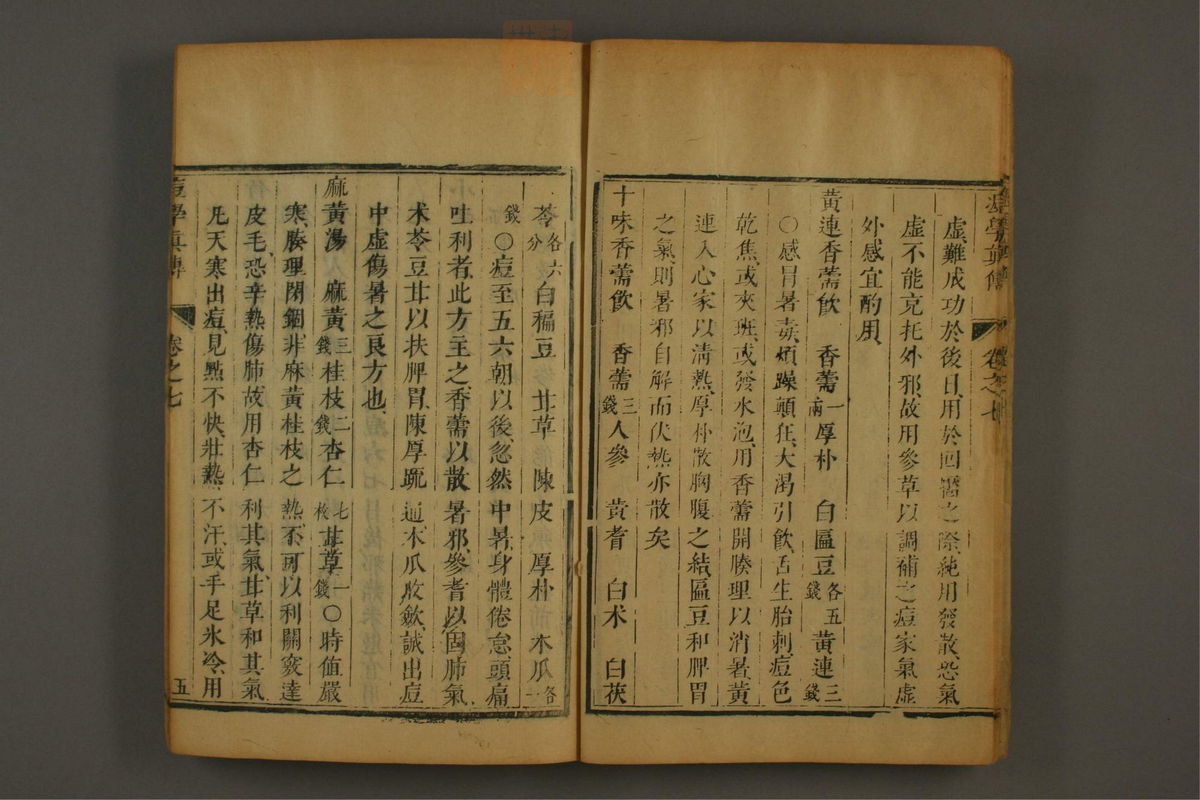 痘學真傳 卷之七
虛難成功於後日用於回醫之際純用發散恐氣
虛不能克托外邪故用參草以調補之痘家氣虛
外感宜酌用
黃連香薷飲 香薷一兩厚朴 白匾豆各五錢黃連三錢
〇感冒暑毒煩躁顛狂大渴引飲舌生胎刺痘色
乾焦或夾班或發水泡用香薷開腠理以消暑黃
連入心家以清熱厚朴散胸腹之結匾豆和脾胃
之氣則暑邪自解而伏熱亦散矣
十味香薷飲 香薷三錢人參 黃耆 白术 白茯
苓各六分白稨豆 甘草 陳皮厚朴 木瓜各一
錢〇痘至五六朝以後忽然中暑身體倦怠頭痛
吐利者此方主之香薷以散暑邪參耆以固肺氣
术苓豆甘以扶脾胃陳厚疏通木瓜收歛誠出痘
中虛傷暑之良方也
麻黃湯 麻黃三錢桂枝二錢杏仁七枚甘草一錢〇時值嚴
寒腠理閉錮非麻黃桂枝之熱不可以利關竅達
皮毛恐辛熱傷肺故用杏仁利其氣甘草和其氣
凡天寒出痘見㸃不快壯熱不汗或手足氷冷用
痘學真傳 卷之七 五